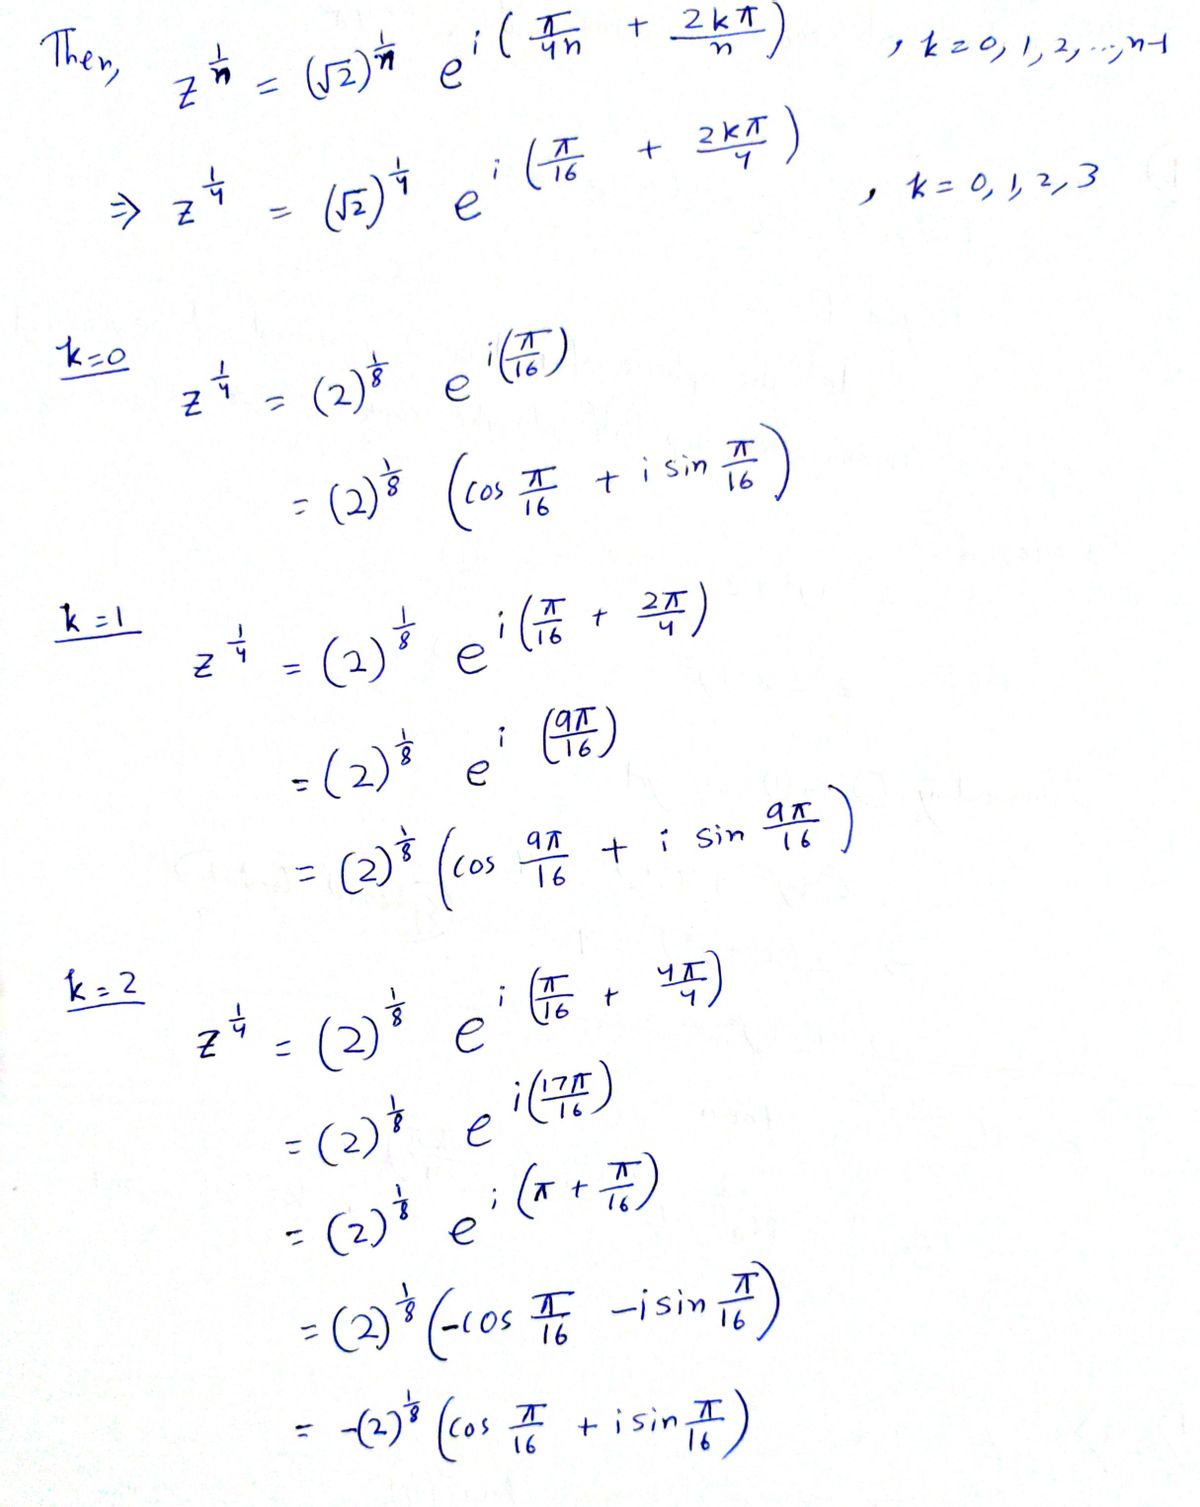 Then, z^{1/n} = (√2)^{1/n} e^{i(π/4n + 2kπ/n)} , k=0, 1, 2, ..., n-1
⇒ z^{1/4} = (√2)^{1/4} e^{i(π/16 + 2kπ/4)} , k = 0, 1, 2, 3
k=0 z^{1/4} = (2)^{1/8} e^{i(π/16)}
= (2)^{1/8} (cos π/16 + i sin π/16)
k=1 z^{1/4} = (2)^{1/8} e^{i(π/16 + 2π/4)}
= (2)^{1/8} e^{i(9π/16)}
= (2)^{1/8} (cos 9π/16 + i sin 9π/16)
k=2 z^{1/4} = (2)^{1/8} e^{i(π/16 + 4π/4)}
= (2)^{1/8} e^{i(17π/16)}
= (2)^{1/8} e^{i(π + π/16)}
= (2)^{1/8} (-cos π/16 - i sin π/16)
= -(2)^{1/8} (cos π/16 + i sin π/16)